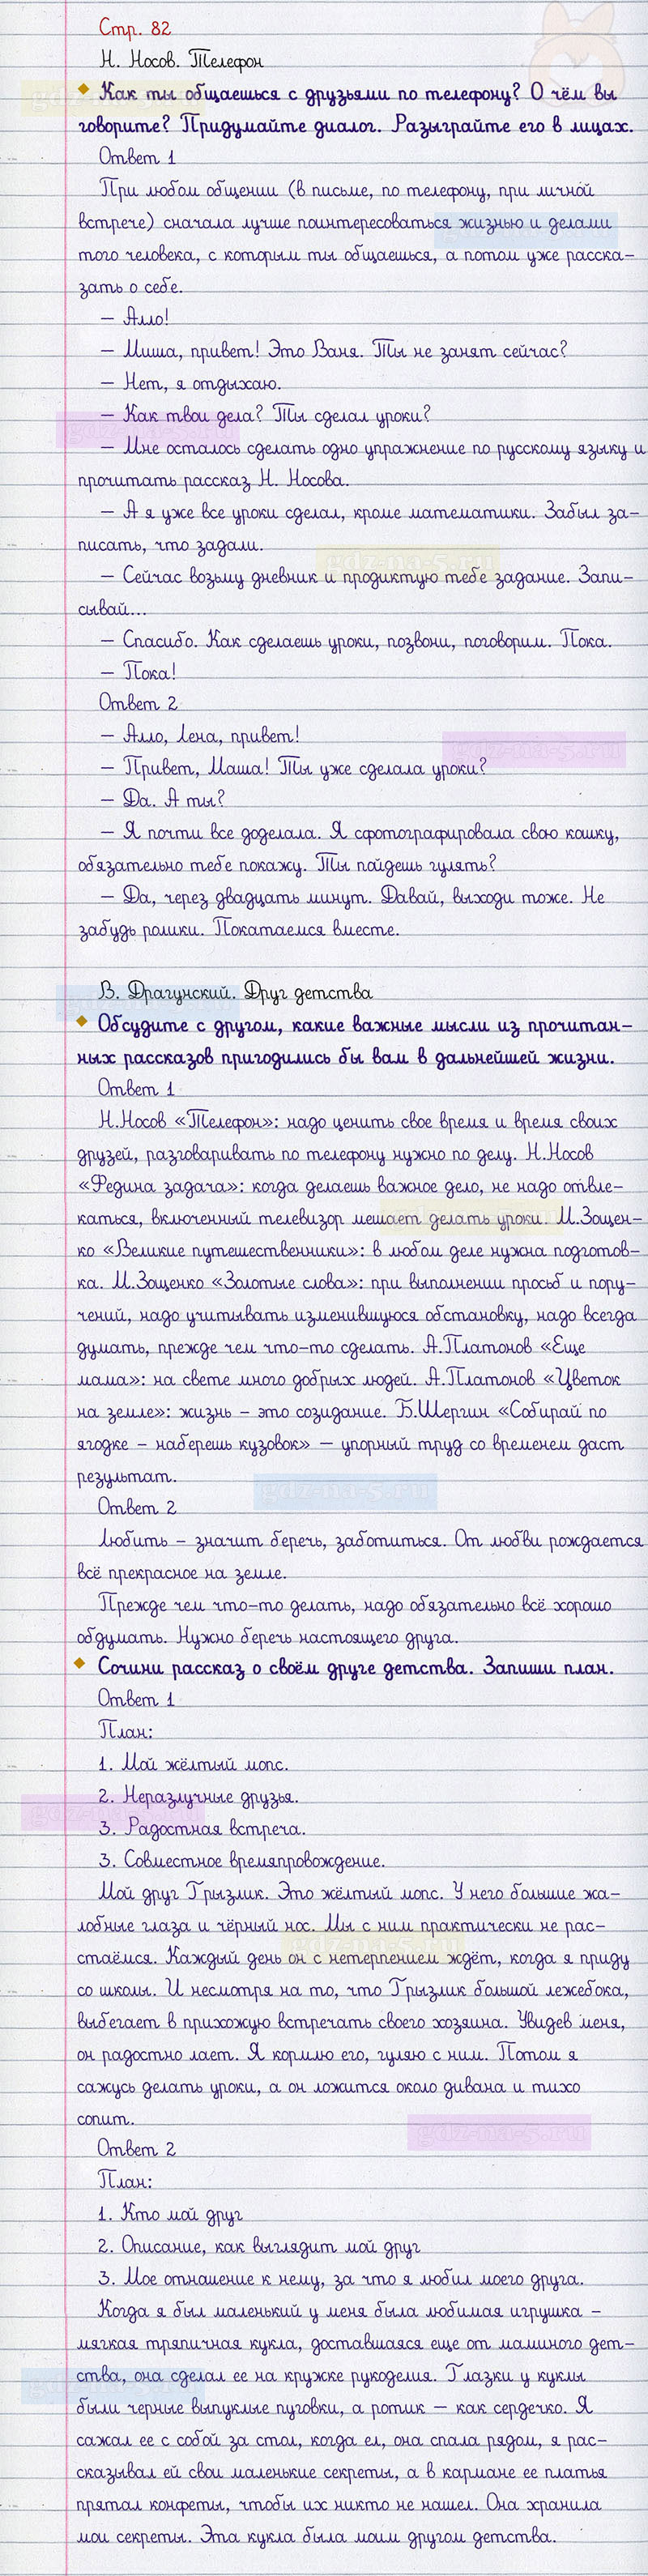 Стр. 82
Н. Носов. Телефон
Как ты общаешься с друзьями по телефону? О чём вы
говорите? Придумайте диалог. Разыграйте его в лицах.
Ответ 1
При любом общении (в письме, по телефону, при личной
встрече) сначала лучше поинтересоваться жизнью и делами
того человека, с которым ты общаешься, а потом уже расска-
зать о себе.
– Алло!
– Миша, привет! Это Ваня. Ты не занят сейчас?
– Нет, я отдыхаю.
– Как твои дела? Ты сделал уроки?
– Мне осталось сделать одно упражнение по русскому языку и
прочитать рассказ Н. Носова.
– А я уже все уроки сделал, кроме математики. Забыл за-
писать, что задали.
– Сейчас возьму дневник и продиктую тебе задание. Запи-
сывай...
– Спасибо. Как сделаешь уроки, позвони, поговорим. Пока.
– Пока!
Ответ 2
– Алло, Лена, привет!
– Привет, Маша! Ты уже сделала уроки?
– Да. А ты?
– Я почти все доделала. Я сфотографировала свою кошку,
обязательно тебе покажу. Ты пойдешь гулять?
– Да, через двадцать минут. Давай, выходи тоже. Не
забудь ролики. Покатаемся вместе.
В. Драгунский. Друг детства
Обсудите с другом, какие важные мысли из прочитан-
ных рассказов пригодились бы вам в дальнейшей жизни.
Ответ 1
Н.Носов «Телефон»: надо ценить свое время и время своих
друзей, разговаривать по телефону нужно по делу. Н.Носов
«Федина задача»: когда делаешь важное дело, не надо отвле-
каться, включенный телевизор мешает делать уроки. М.Зощен-
ко «Великие путешественники»: в любом деле нужна подготов-
ка. М.Зощенко «Золотые слова»: при выполнении просьб и пору-
чений, надо учитывать изменившуюся обстановку, надо всегда
думать, прежде чем что-то сделать. А.Платонов «Еще
мама»: на свете много добрых людей. А.Платонов «Цветок
на земле»: жизнь – это созидание. Б.Шергин «Собирай по
ягодке – наберешь кузовок» – упорный труд со временем даст
результат.
Ответ 2
Любить – значит беречь, заботиться. От любви рождается
всё прекрасное на земле.
Прежде чем что-то делать, надо обязательно всё хорошо
обдумать. Нужно беречь настоящего друга.
Сочини рассказ о своём друге детства. Запиши план.
Ответ 1
План:
1. Мой жёлтый мопс.
2. Неразлучные друзья.
3. Радостная встреча.
3. Совместное времяпровождение.
Мой друг Грызлик. Это жёлтый мопс. У него большие жа-
лобные глаза и чёрный нос. Мы с ним практически не рас-
стаёмся. Каждый день он с нетерпением ждёт, когда я приду
со школы. И несмотря на то, что Грызлик большой лежебока,
выбегает в прихожую встречать своего хозяина. Увидев меня,
он радостно лает. Я кормлю его, гуляю с ним. Потом я
сажусь делать уроки, а он ложится около дивана и тихо
сопит.
Ответ 2
План:
1. Кто мой друг
2. Описание, как выглядит мой друг
3. Мое отношение к нему, за что я любил моего друга.
Когда я был маленький у меня была любимая игрушка –
мягкая тряпичная кукла, доставшаяся еще от маминого дет-
ства, она сделал ее на кружке рукоделия. Глазки у куклы
были черные выпуклые пуговки, а ротик – как сердечко. Я
сажал ее с собой за стол, когда ел, она спала рядом, я рас-
сказывал ей свои маленькие секреты, а в кармане ее платья
прятал конфеты, чтобы их никто не нашел. Она хранила
мои секреты. Эта кукла была моим другом детства.